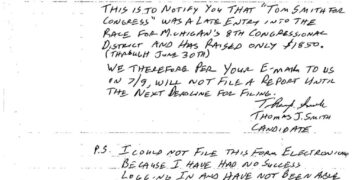 THIS IS TO NOTIFY YOU THAT "TOM SMITH FOR
CONGRESS" WAS A LATE ENTRY INTO THE
RACE FOR MICHIGAN'S 8TH CONGRESSIONAL
DISTRICT AND HAS RAISED ONLY $1850.
(THROUGH JUNE 30TH)
WE THEREFORE PER YOUR E-MAIL TO US
ON 7/9, WILL NOT FILE A REPORT UNTIL
THE NEXT DEADLINE FOR FILING.
THOMAS J. SMITH
CANDIDATE
P.S. I COULD NOT FILE THIS FORM ELECTRONICAL
BECAUSE I HAVE HAD NO SUCCESS
LOGGING IN AND HAVE NOT BEEN ABLE